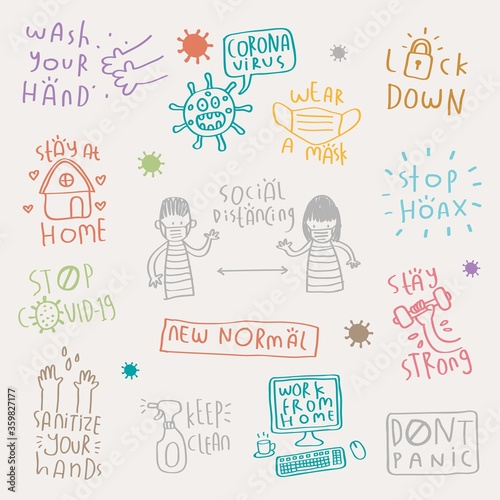 WASH
YOUR
HAND
CORONA
VIRUS
WEAR
A MASK
LOCK
DOWN
STAY AT
HOME
SOCIAL
DISTANCING
STOP
HOAX
STOP
COVID-19
NEW NORMAL
STAY
STRONG
SANITIZE
YOUR
HANDS
KEEP
CLEAN
WORK
FROM
HOME
DONT
PANIC
Adobe Stock | #359827177